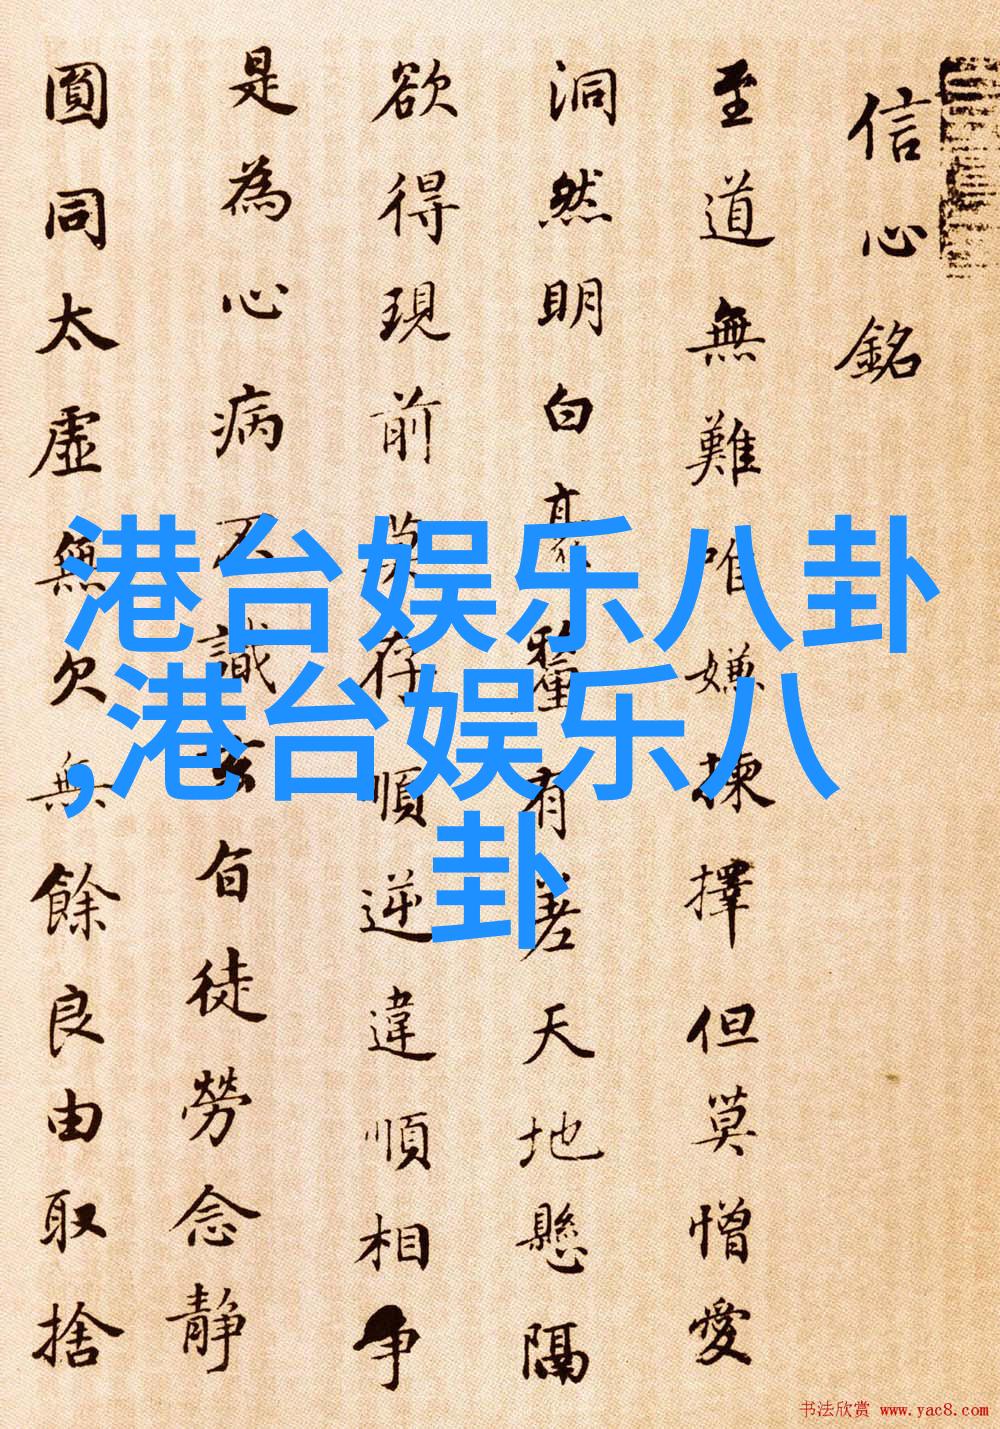 信心銘
至道無難唯嫌揀擇但莫憎愛
洞然明白毫釐有差天地懸隔
欲得現前莫存順逆違順相争
是為心病不識玄旨徒勞念静
圓同太虛無欠無餘良由取捨
港台娱乐八卦
,港台娱乐八
卦
书法欣赏 www.yac8.com